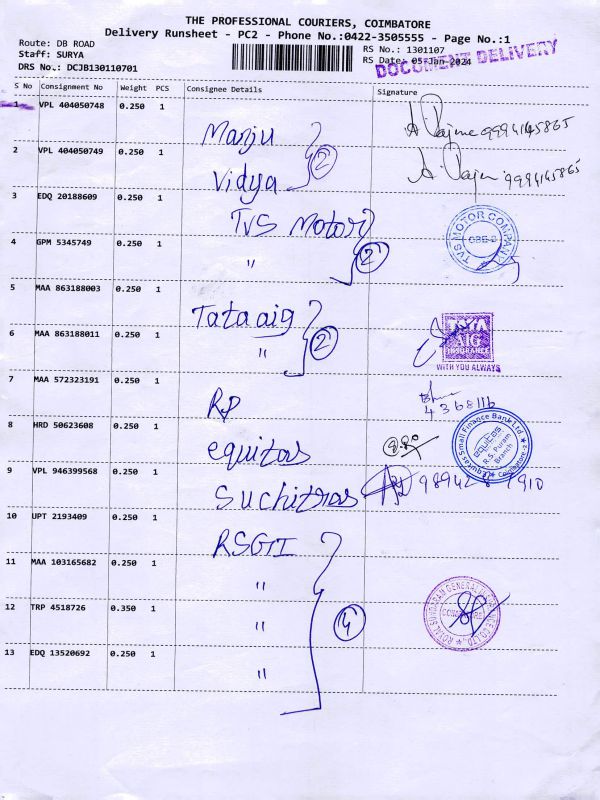 THE PROFESSIONAL COURIERS, COIMBATORE
Delivery Runsheet - PC2 - Phone No.:0422-3505555 - Page No.:1
Route: DB ROAD
Staff: SURYA
DRS No.: DCJB130110701
RS No.: 1301107
RS Date: 05-Jan-2024
DOCUMENT DELIVERY
S No Consignment No Weight PCS Consignee Details Signature
1 VPL 404050748 0.250 1 Manju 9994145865
2 VPL 404050749 0.250 1 Vidya 2 9994145865
3 EDQ 20188609 0.250 1 TVS Motor TVS MOTOR COMPANY
4 GPM 5345749 0.250 1 " 2
5 MAA 863188003 0.250 1 Tata aig
6 MAA 863188011 0.250 1 " 2 TATA AIG INSURANCE WITH YOU ALWAYS
7 MAA 572323191 0.250 1 RP 4368116
8 HRD 50623608 0.250 1 equitas equitas Small Finance Bank Ltd R.S. Puram Branch Coimbatore-2
9 VPL 946399568 0.250 1 Suchitras
10 UPT 2193409 0.250 1 RSGI
11 MAA 103165682 0.250 1 "
12 TRP 4518726 0.350 1 " 4 COIMBATORE
13 EDQ 13520692 0.250 1 "